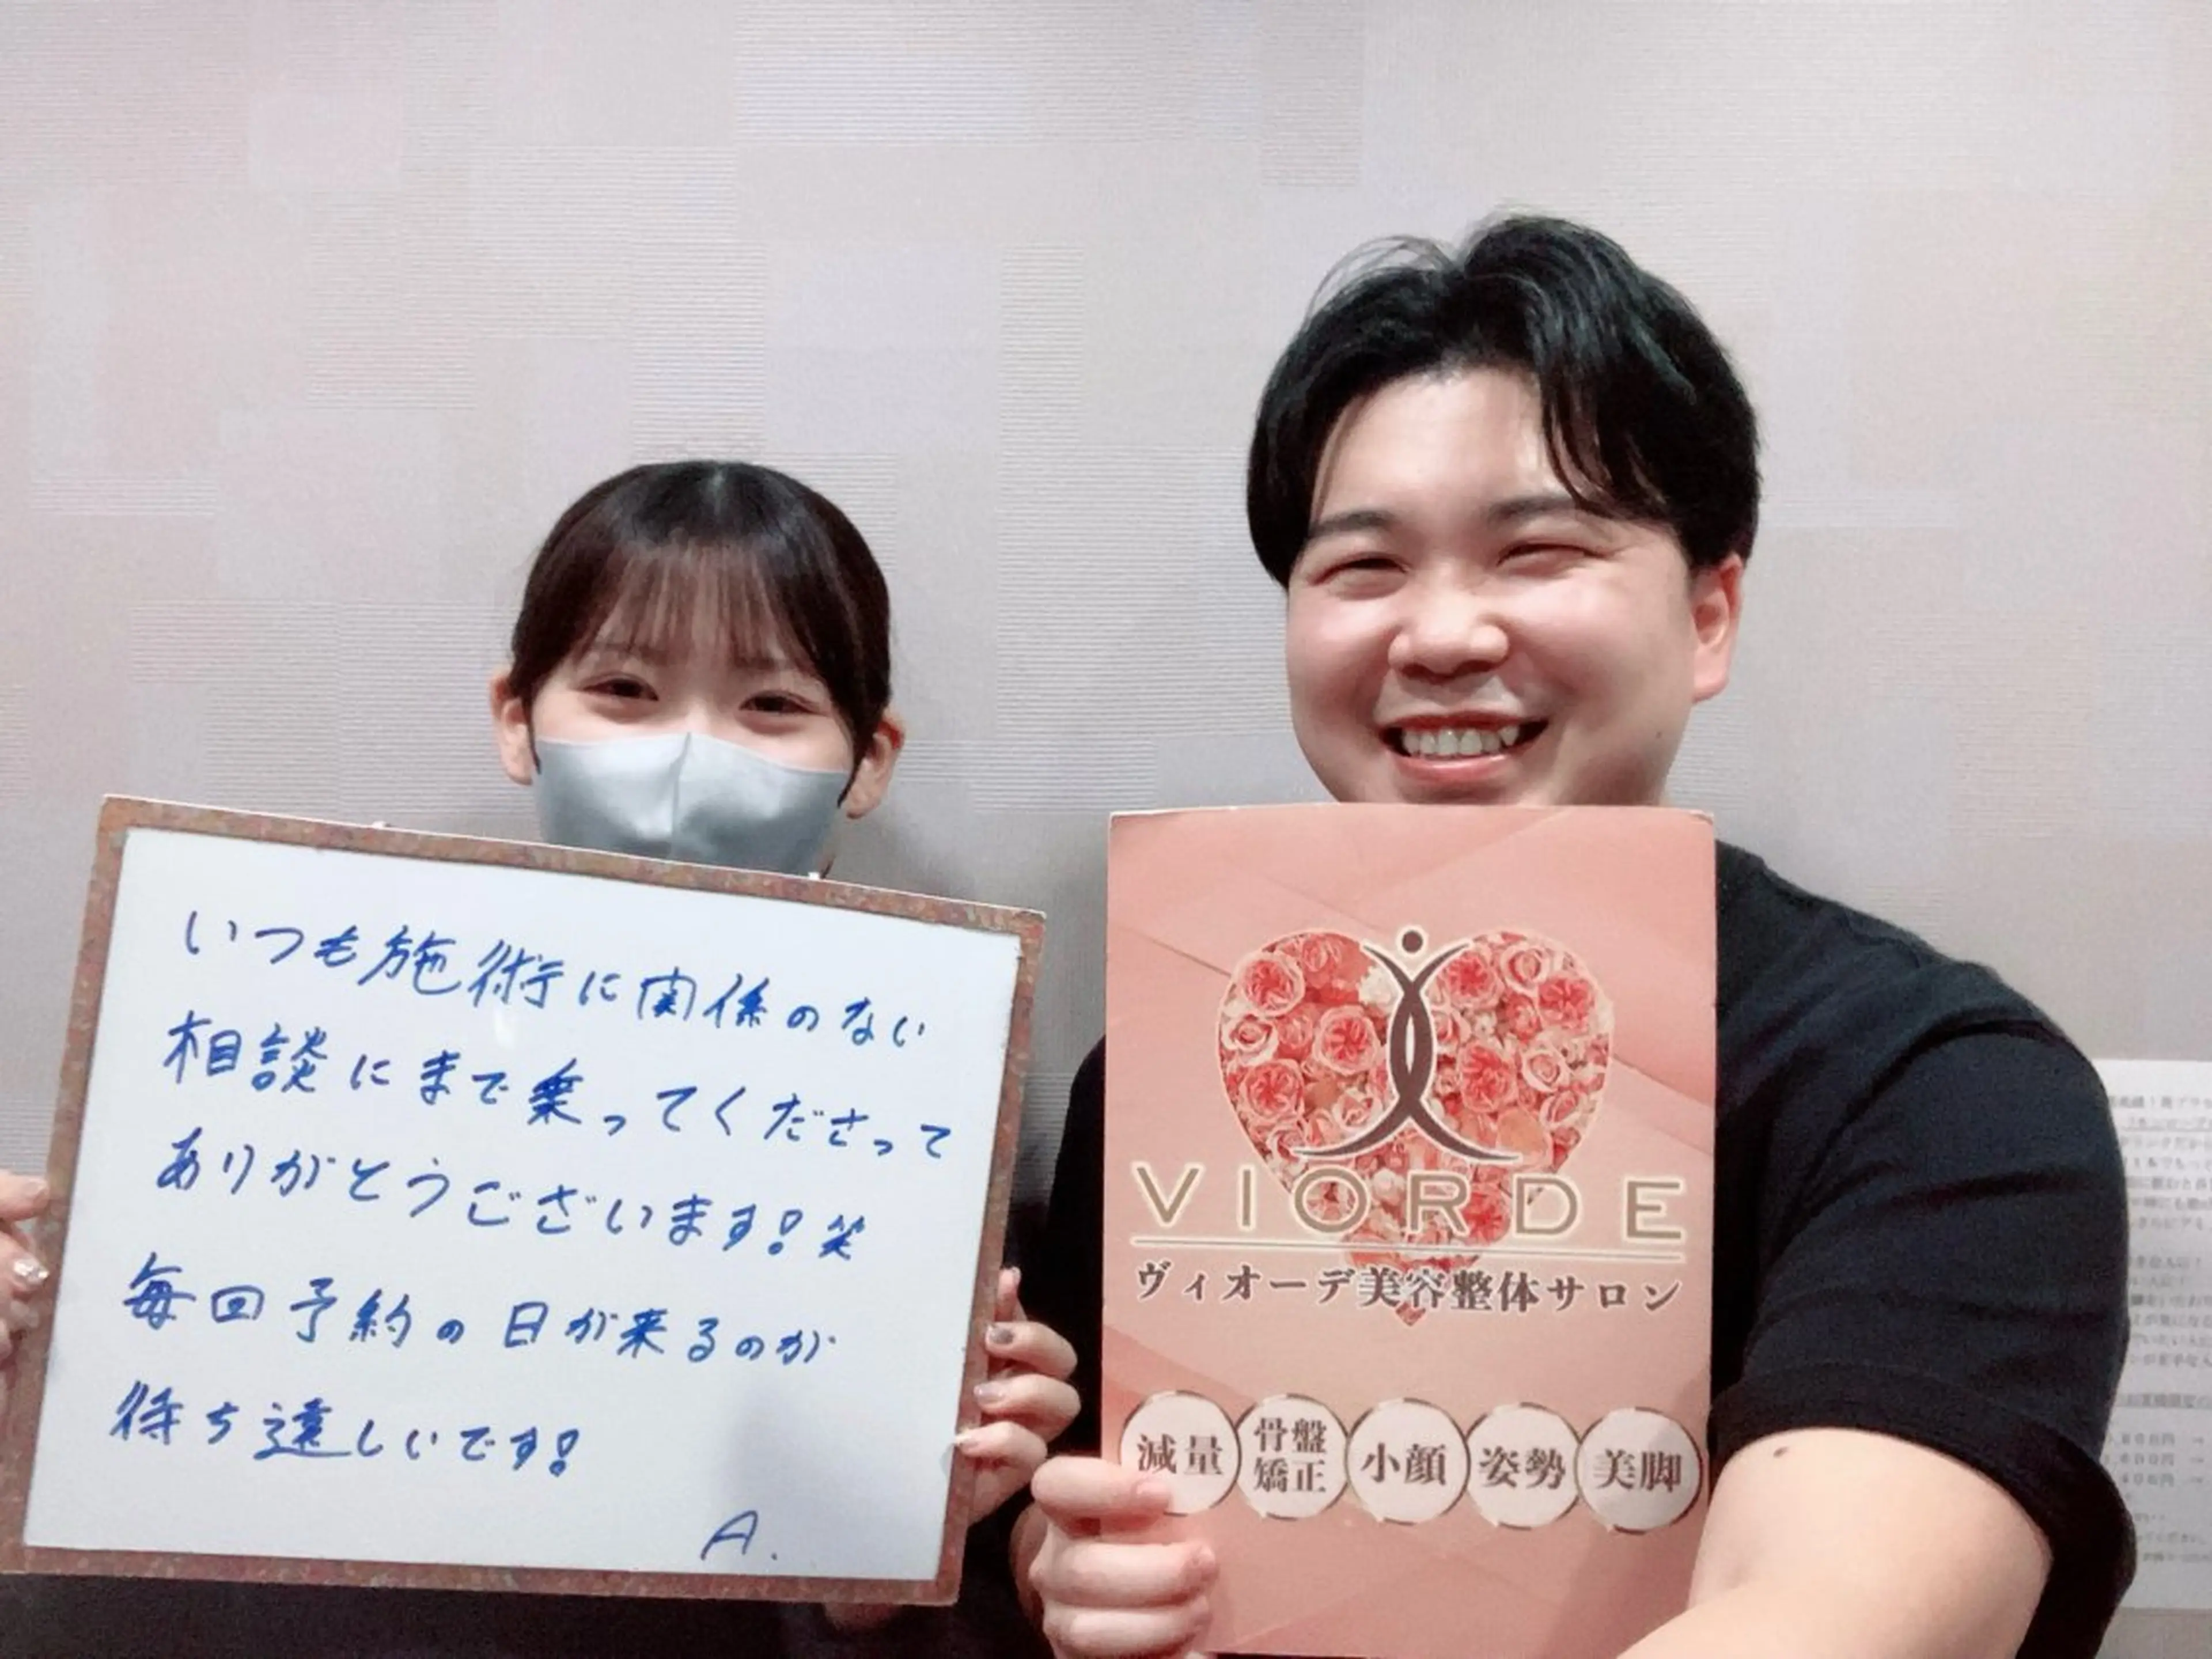 いつも施術に関係のない
相談にまで乗ってくださって
ありがとうございます!笑
毎回予約の日が来るのが
待ち遠しいです!
A.
VIORDE
ヴィオーデ美容整体サロン
減量
骨盤
矯正
小顔
姿勢
美脚